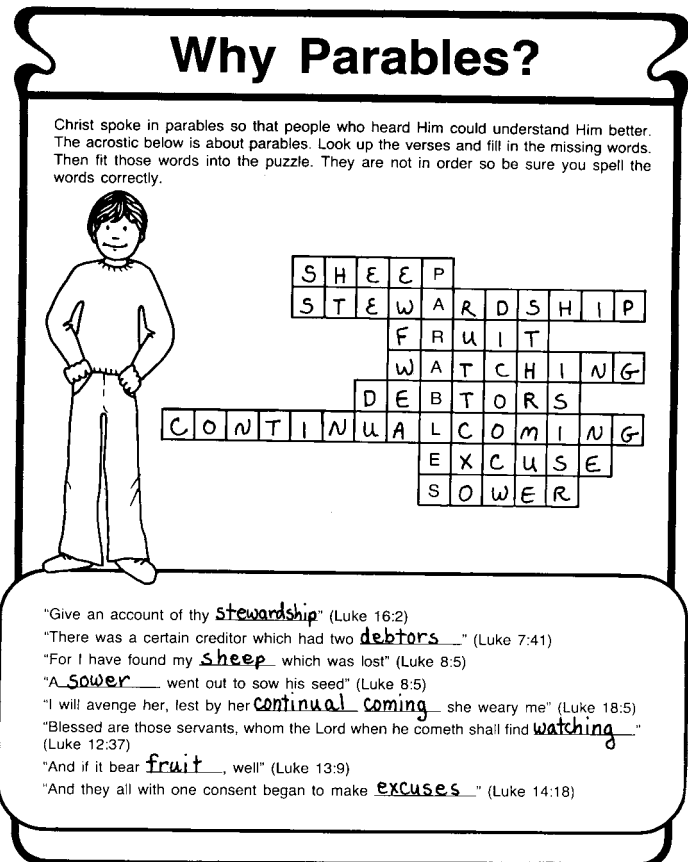 Why Parables?
Christ spoke in parables so that people who heard Him could understand Him better.
The acrostic below is about parables. Look up the verses and fill in the missing words.
Then fit those words into the puzzle. They are not in order so be sure you spell the
words correctly.
SHEEP
STEWARDSHIP
FRUIT
WATCHING
DEBTORS
CONTINUALCOMING
EXCUSE
SOWER
"Give an account of thy stewardship" (Luke 16:2)
"There was a certain creditor which had two debtors" (Luke 7:41)
"For I have found my sheep which was lost" (Luke 8:5)
"A sower went out to sow his seed" (Luke 8:5)
"I will avenge her, lest by her continual coming she weary me" (Luke 18:5)
"Blessed are those servants, whom the Lord when he cometh shall find watching"
(Luke 12:37)
"And if it bear fruit, well" (Luke 13:9)
"And they all with one consent began to make excuses" (Luke 14:18)